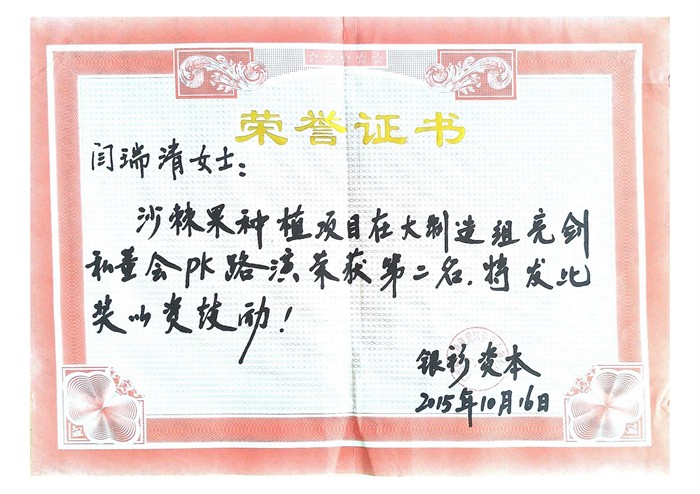 荣誉证书
闫瑞清女士：
沙棘果种植项目在大制造组亮剑
和董会PK路演荣获第二名.特发此
奖以资鼓励！
银杉资本
2015年10月16日